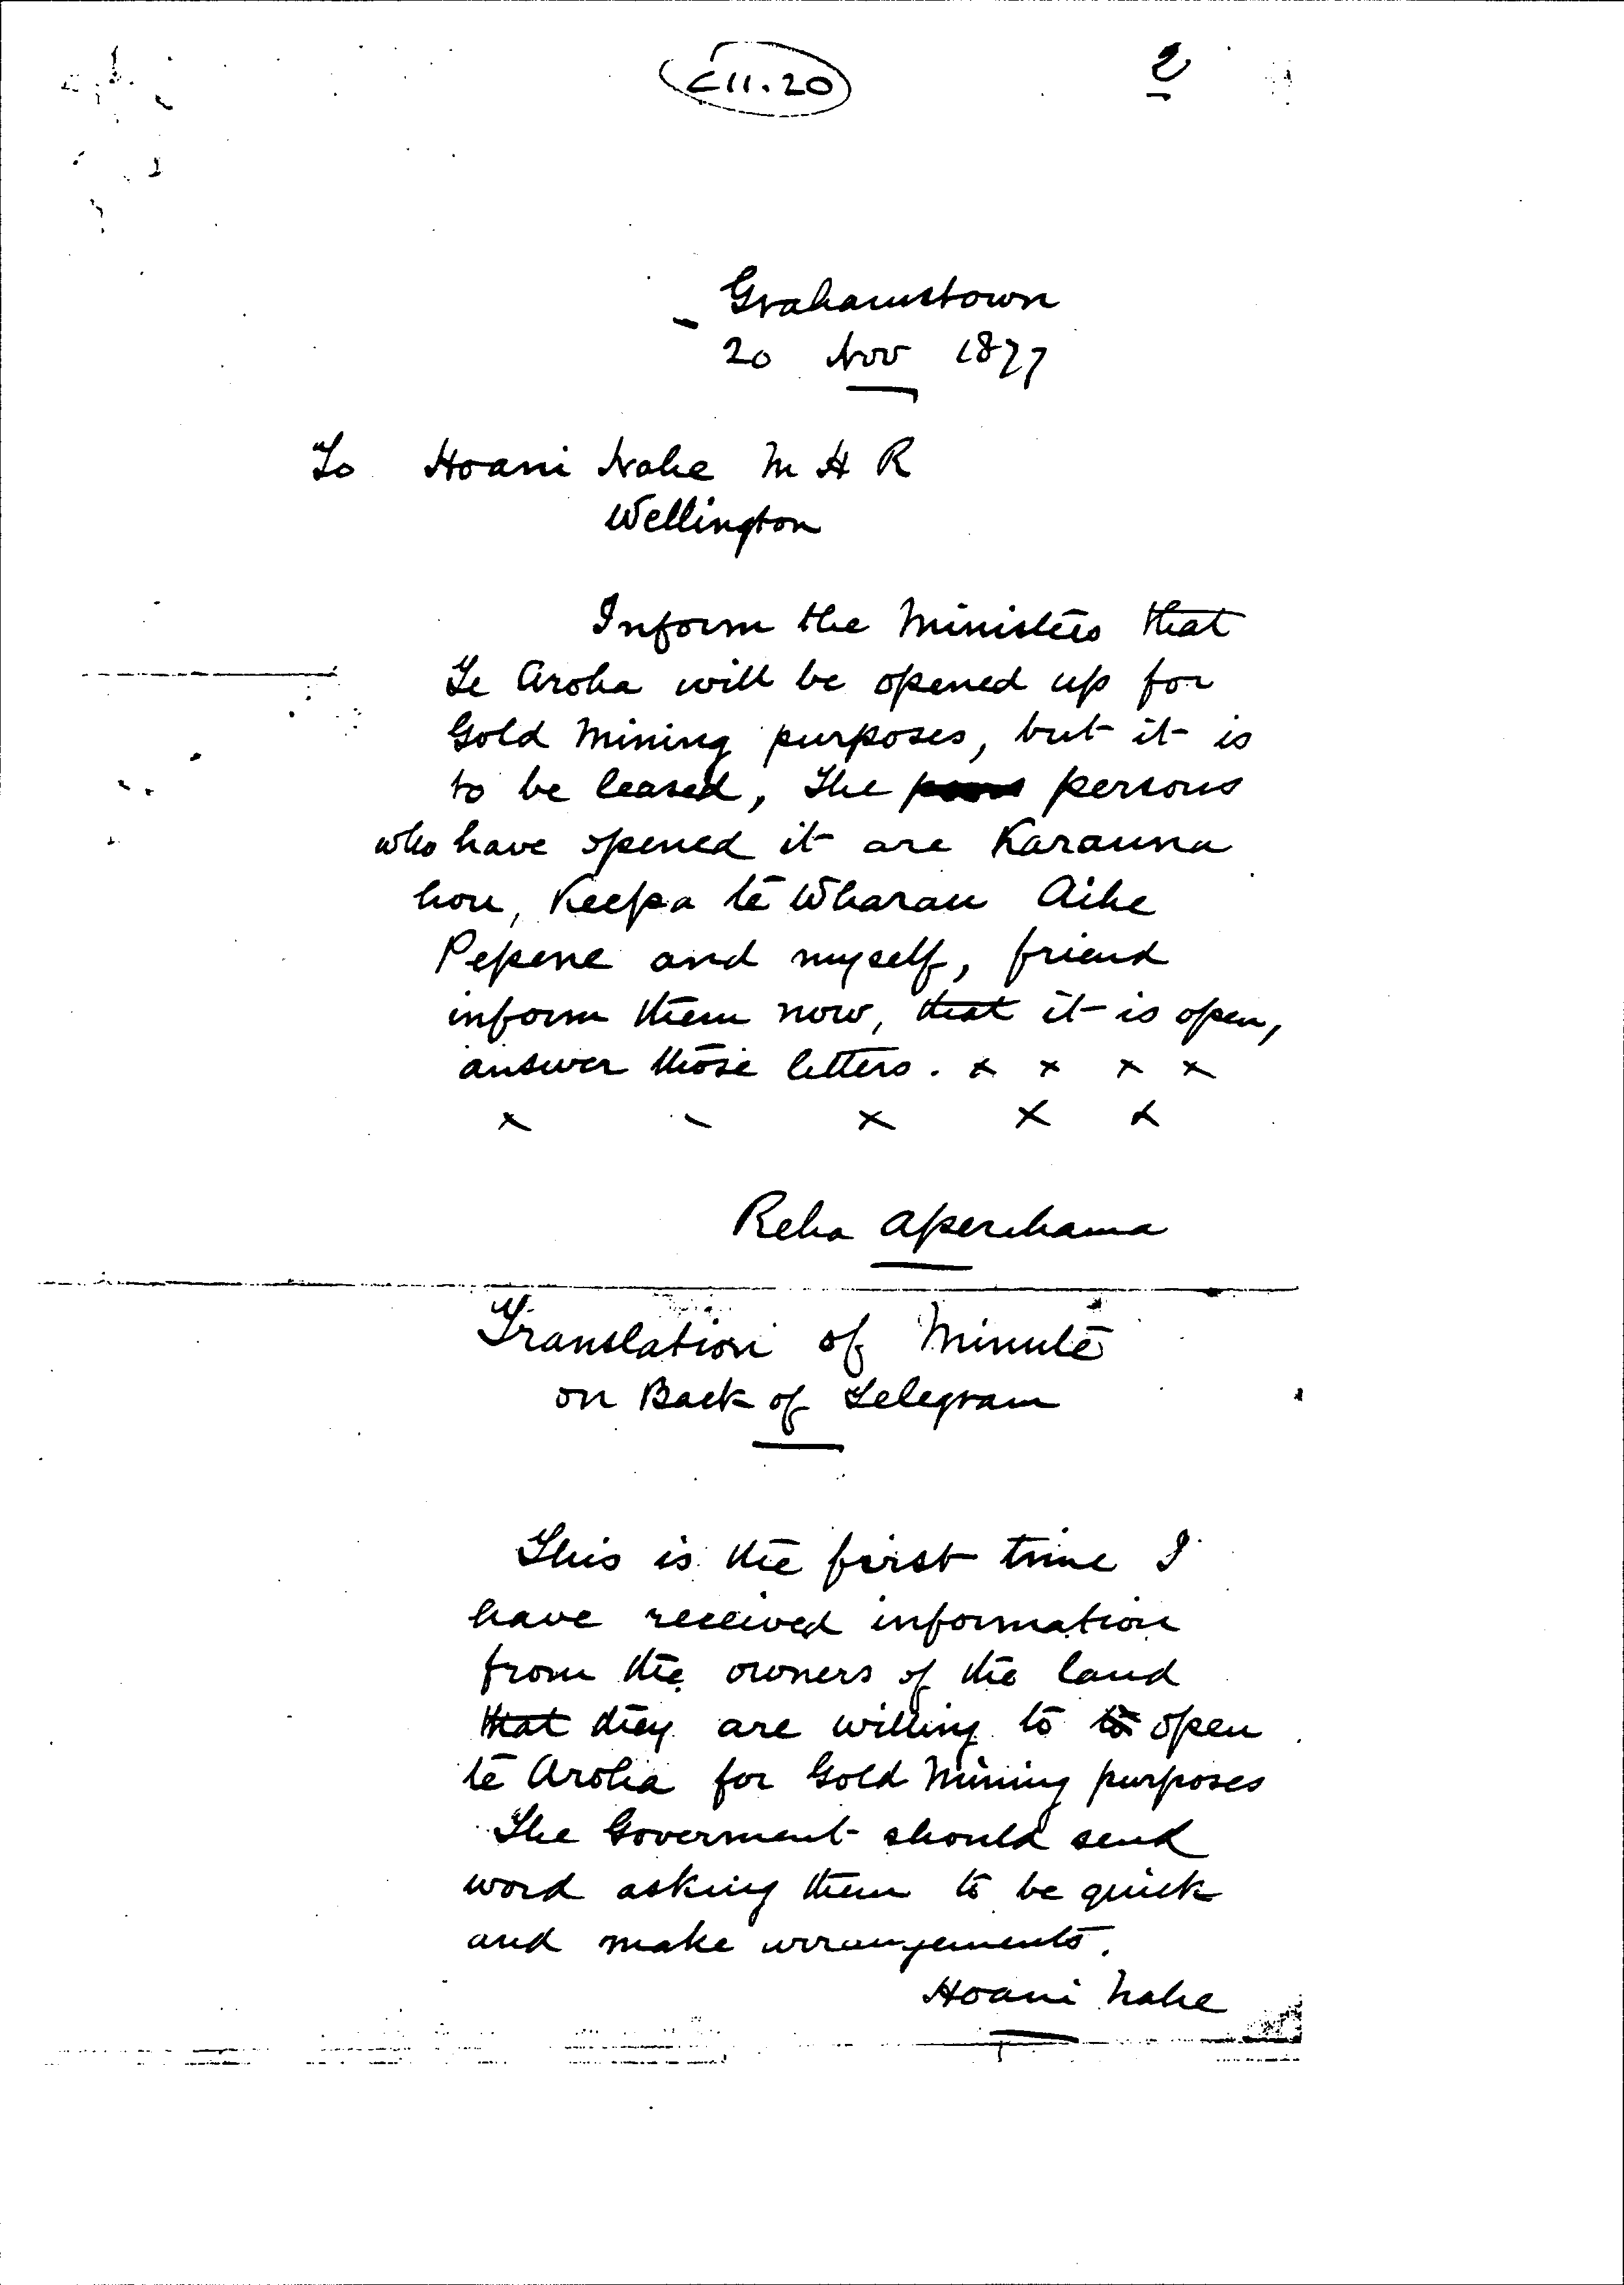 C11.20
2
Grahamstown
20 Nov 1877
To Hoani Nahe M H R
Wellington
Inform the Ministers that
Te Aroha will be opened up for
Gold Mining purposes, but it is
to be leased, The persons
who have opened it are Karauna
hou, Keepa te Wharau Aihe
Pepene and myself, friend
inform them now, that it is open,
answer those letters. x x x x
x x x x
Reha Aperehama
Translation of Minute
on Back of Telegram
This is the first time I
have received information
from the owners of the land
that they are willing to to open
te Aroha for Gold Mining purposes
The Goverment should send
word asking them to be quick
and make arrangements.
Hoani Nahe